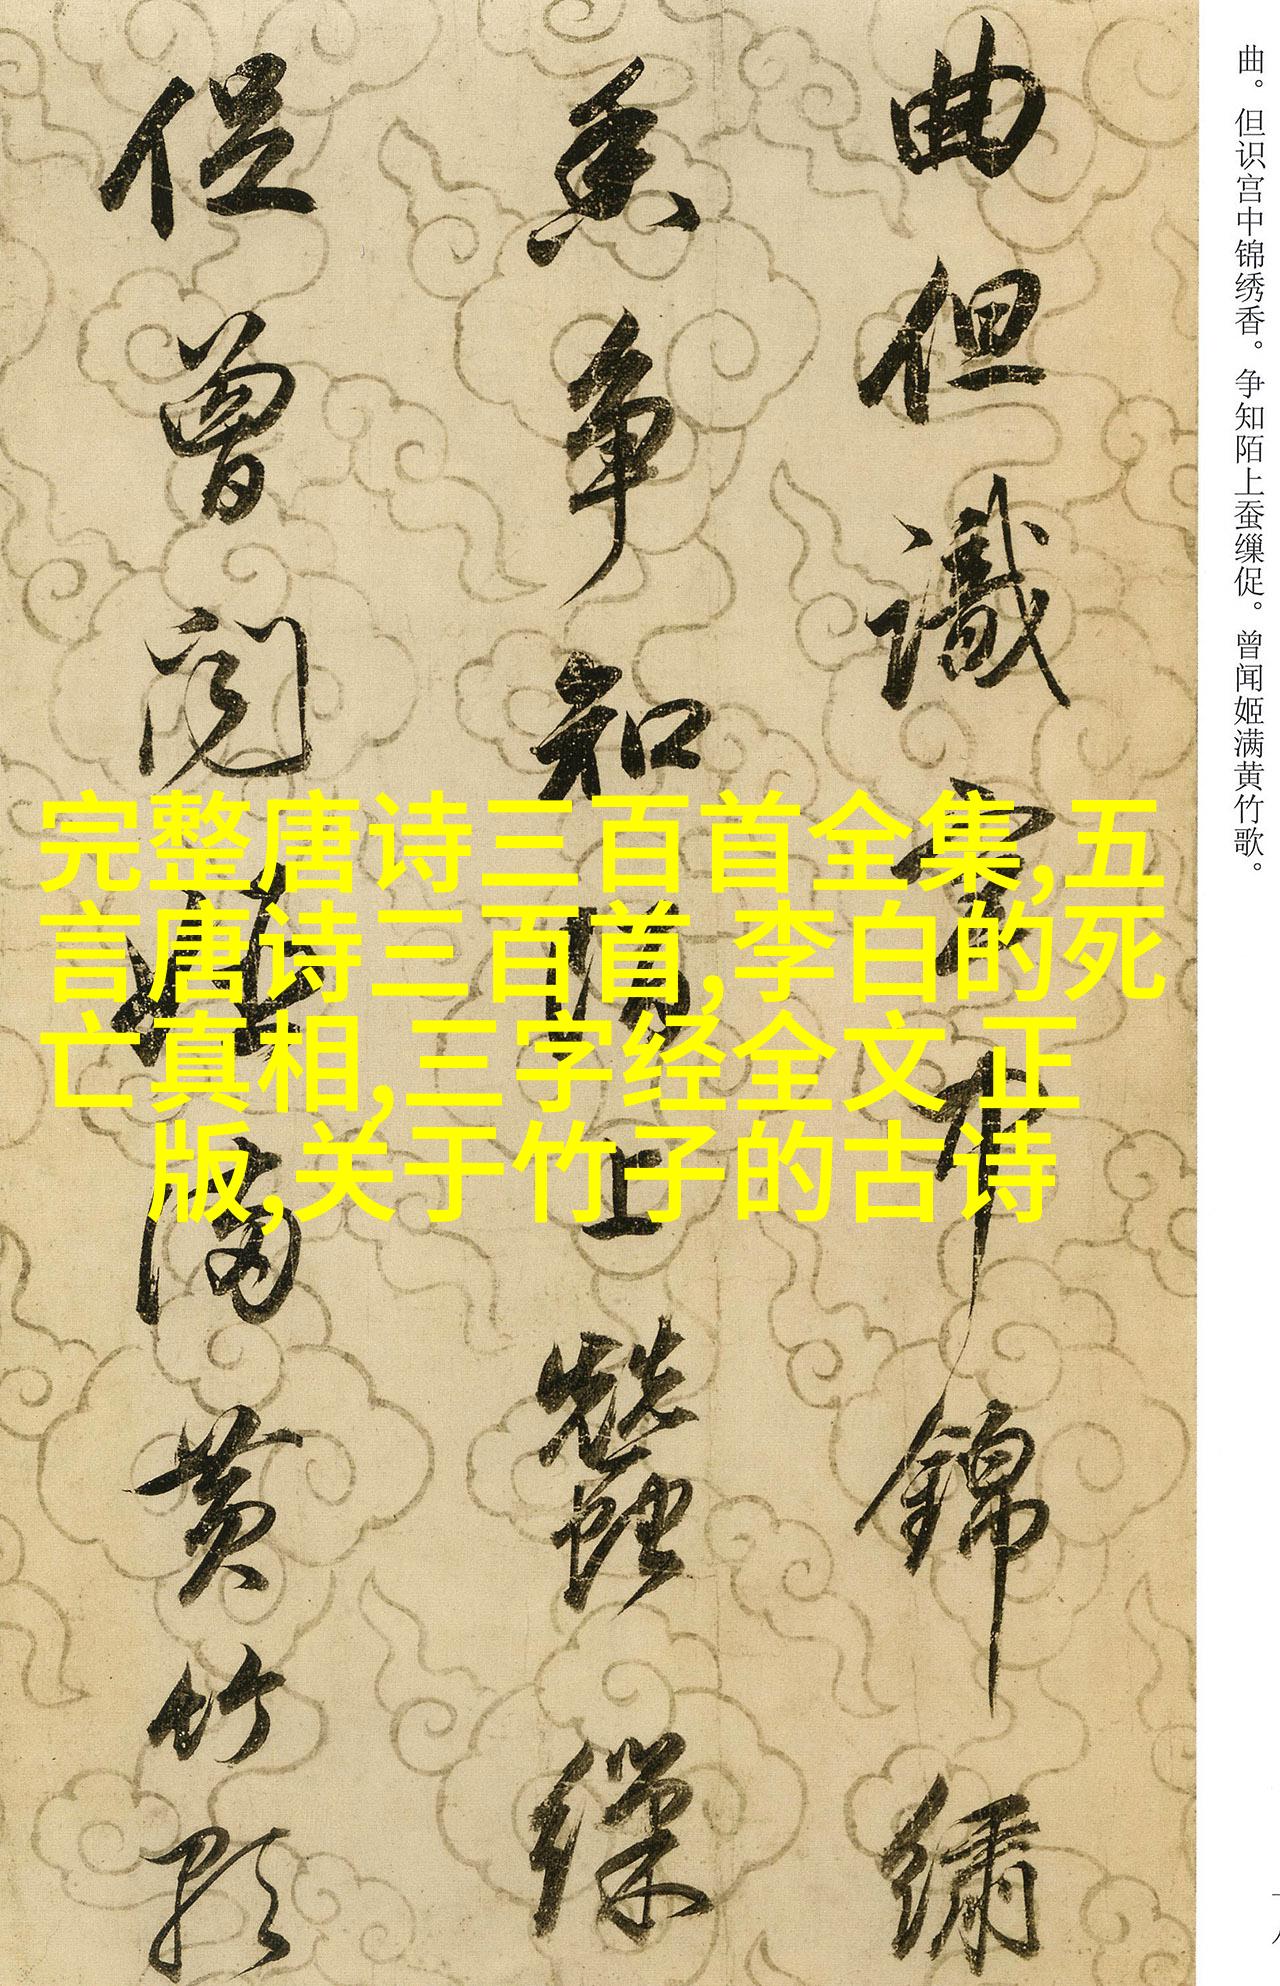 曲。但识宫中锦绣香。争知陌上蚕缫促。曾闻姬满黄竹歌。
曲但識宫中錦繡
香争知陌上蠶繅
促曾闻姬满黄竹歌
完整唐诗三百首全集,五
言唐诗三百首,李白的死
亡真相,三字经全文 正
版,关于竹子的古诗